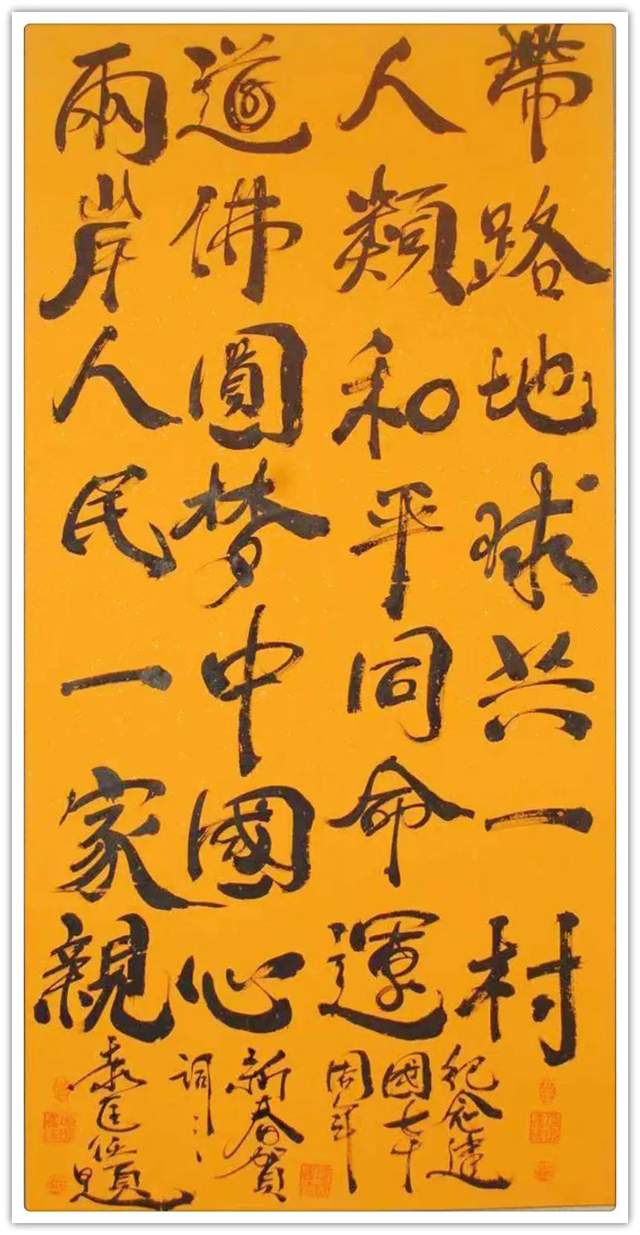 帶路地球共一村
人類和平同命運
道佛圓梦中國心
兩岸人民一家親
紀念建
國七十
周年
新春賀
詞
題